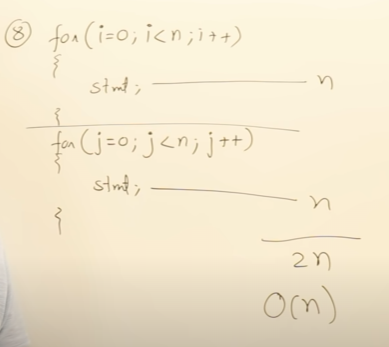 ⑧ for(i=0; i<n; i++)
{
stmt; n
}
for(j=0; j<n; j++)
{
stmt; n
}
2n
O(n)